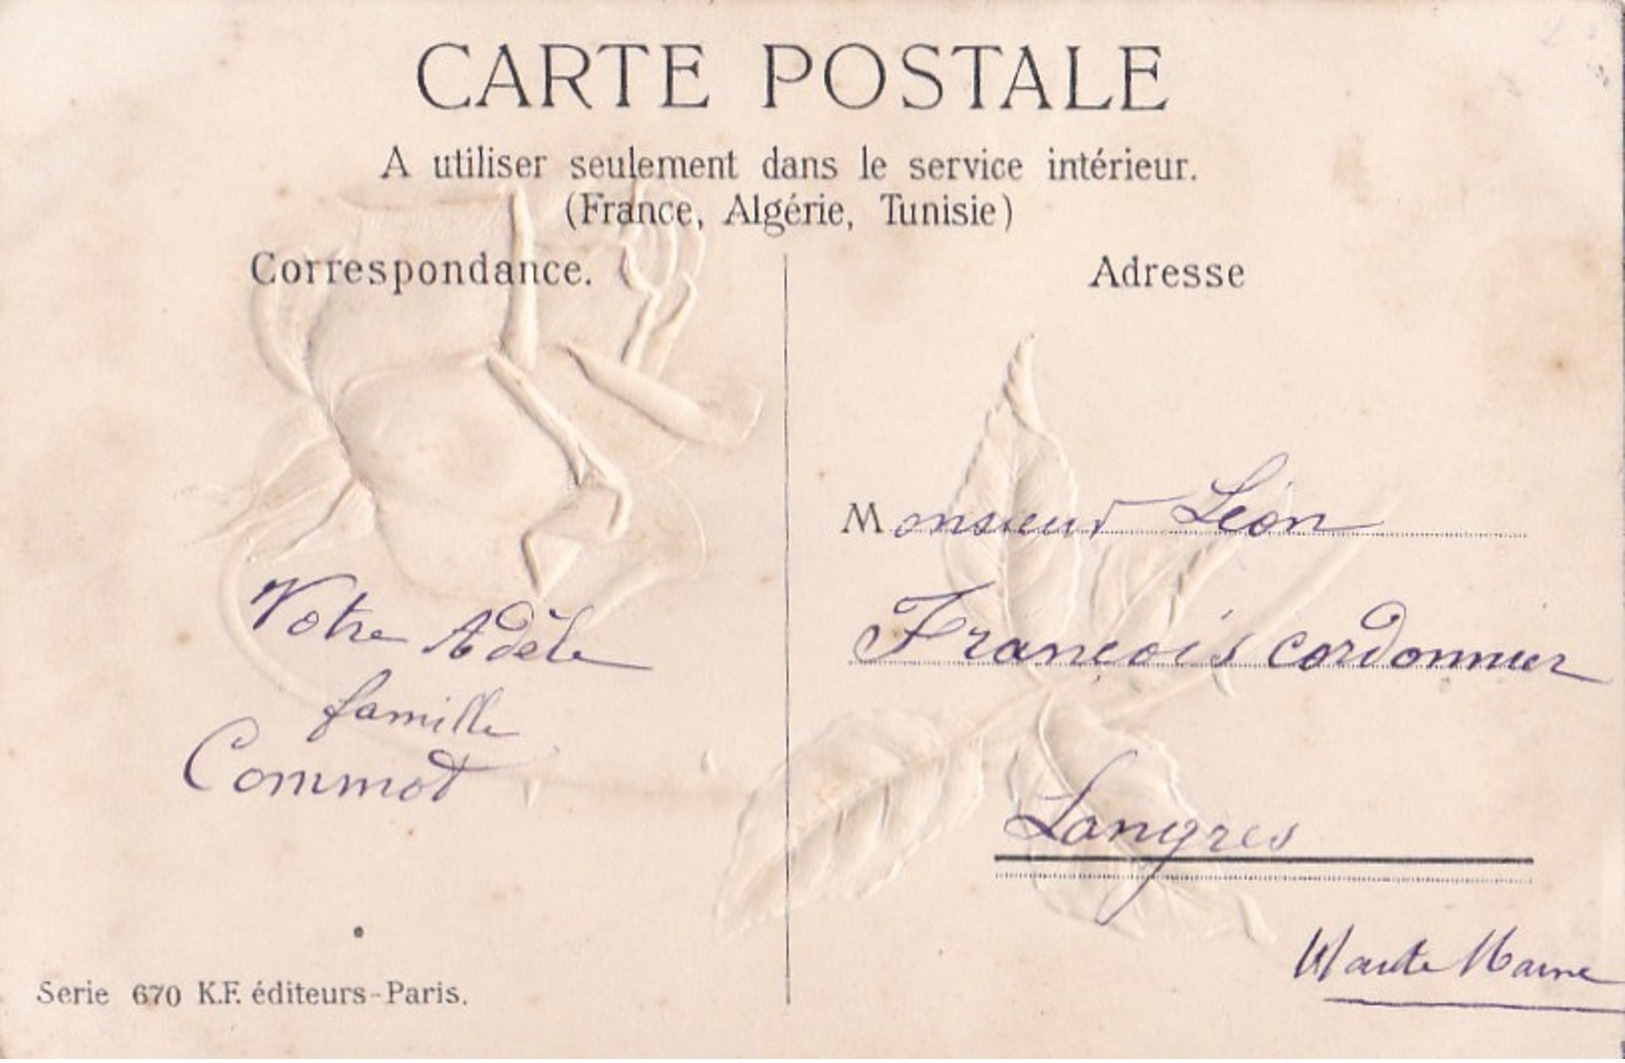 CARTE POSTALE
A utiliser seulement dans le service intérieur.
(France, Algérie, Tunisie)
Correspondance.
Adresse
Monsieur Léon
François cordonnier
Langres
Haute Marne
Votre Adèle
famille
Commot
Serie 670 K.F. éditeurs-Paris.